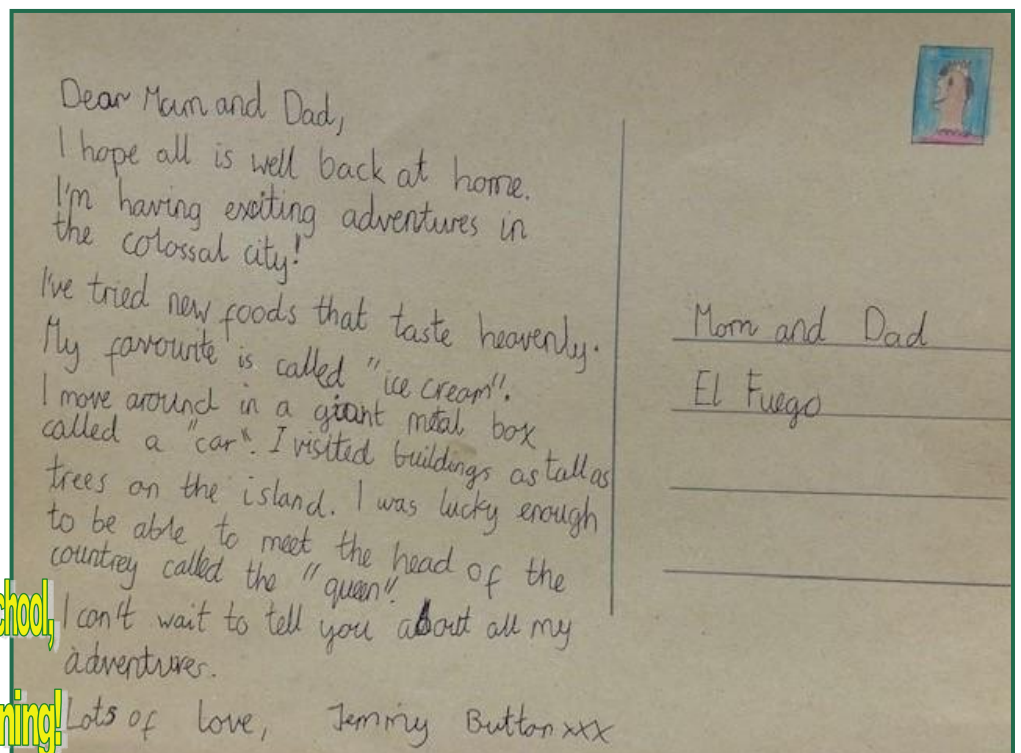 Dear Mum and Dad,
I hope all is well back at home.
I'm having exciting adventures in
the colossal city!
I've tried new foods that taste heavenly.
My favourite is called "ice cream".
I move around in a giant metal box
called a "car". I visited buildings as tall as
trees on the island. I was lucky enough
to be able to meet the head of the
countrey called the "queen".
I can't wait to tell you about all my
adventures.
Lots of love, Jemmy Button xxx
Mom and Dad
El Fuego
chool,
ning!